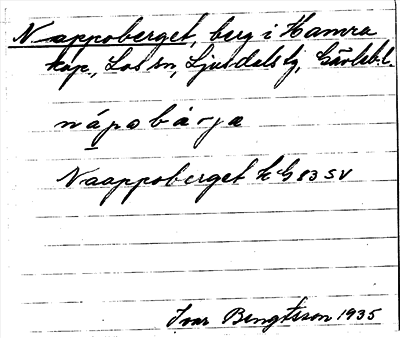 Nappoberget, berg i Hamra
kap., Los sn, Ljusdals tg, Gävleb. l.
nápobárja
Naappoberget k G 83 SV
Ivar Bengtsson 1935